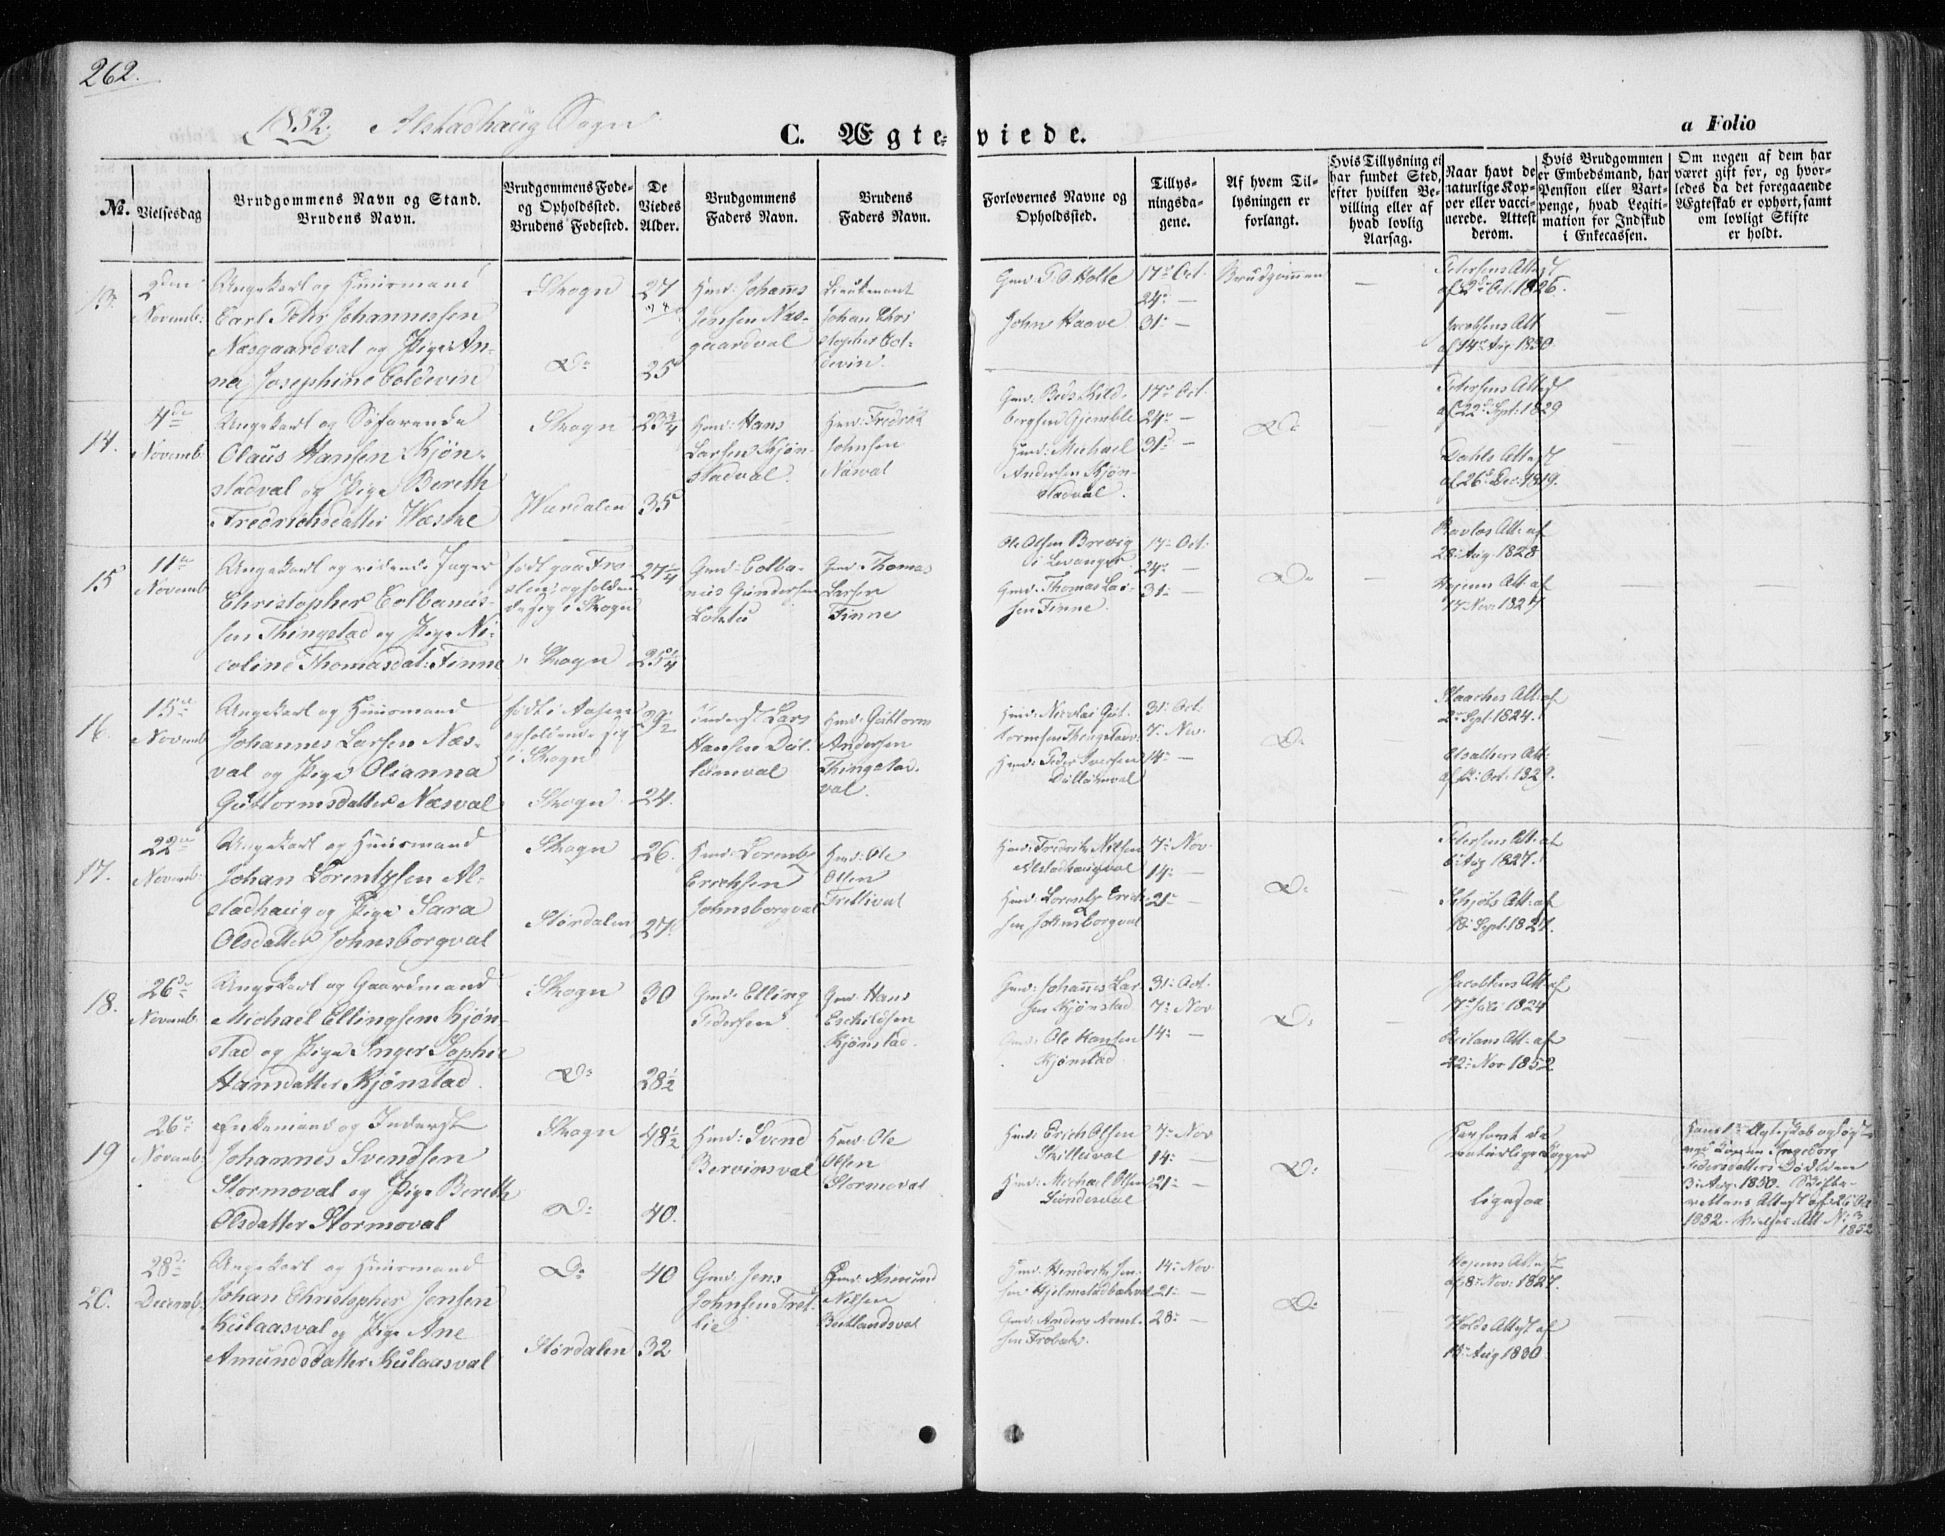 262.
1852. Alstadhaug Sogn
C. Ægte-
viede.
a Folio
No.
Vielsesdag
Brudgommens Navn og Stand.
Brudens Navn.
Brudgommens Føde-
og Opholdssted.
Brudens Fødested.
De
Viedes
Alder.
Brudgommens
Faders Navn.
Brudens
Faders Navn.
Forlovernes Navne og
Opholdssted.
Tillys-
ningsda-
gene.
Af hvem Til-
lysningen er
forlangt.
Hvis Tillysning ei
har fundet Sted,
efter hvilken Be-
villing eller af
hvad lovlig
Aarsag.
Naar havt de
naturlige Kop-
per eller vacci-
nerede. Attest
derom.
Hvis Brudgommen
er Embedsmand, har
Pension eller Vart-
penge, hvad Legiti-
mation for Indskud
i Enkecassen.
Om nogen af dem har
været gift før, og hvor-
ledes da det foregaaende
Ægteskab er ophørt, samt
om lovligt Skifte
er holdt.
13.
2den
Novemb:
Ungekarl og Huusmand
Carl Peter Johannessen
Næsgaardval og Pige An-
na Josephine Coldevin
Skogn
Do
27
25
Hmd: Johans
Jensen Næs-
gaardval
Lieutenant
Johan Chri
stopher Col-
devin.
Gmd: P O Holte
John Haave
17de Oct.
24de —
31: —
Brudgommen
—
Petersens Attest
af 2de Oct. 1826.
Jacobsens Att
af 14de Aug 1830.
—
14.
4de
Novemb
Ungekarl og Søfarende
Olaus Hansen Kjøn-
stadval og Pige Bereth
Fredrichsdatter Wæstre
Skogn
Værdalen
23¾
35
Hmd: Hans
Larsen Kjøn-
stadval.
Hmd: Fredrik
Johnsen
Næsval
Gjemble
Hmd: Michael
Andersen Kjøn-
stadval.
17de Oct.
24de —
31: —
Do
Petersens Attest
af 22de Sept: 1829
Dahls Attest
af 26de Dec: 1819.
15
11te
Novemb
Ungekarl og ridende Jæger
Christopher Colbanus-
sen Thingstad og Pige Ni-
coline Thomasdat: Finne
født paa Fro
sten, opholden
de sig i Skogn
Skogn
27¼
25¼
Gmd: Colba-
nus Gundersen
Gmd Thomas
Larsen
Finne
Ole Olsen Brevig
i Levanger
Gmd: Thomas Lar-
sen Finne.
17: Oct.
24: —
31: —
Do
—
Att: af
28: Aug 1828
Att: af
17: Nov: 1827
16.
15de
Novemb
Ungekarl og Huusmand
Johannes Larsen Næs-
val og Pige Olianna
Guttormsdatter Næsval
født i Aasen
opholdende sig
i Skogn
Skogn
29½
24.
Inderst Lars
Hansen
Hmd: Guttorm
Andersen
Thingstad-
val.
Hmd: Nicolai Gut-
tormsen Thingstadv.
Hmd: Peder Iversen
31: Oct.
7: Nov.
14: —
Do
—
Att: af
2: Sept 1824.
Att:
Oct: 1829.
—
17.
22de
Novemb:
Ungekarl og Huusmand
Johan Lorentzsen Al-
stadhaug og Pige Sara
Olsdatter Johnsborgval
Skogn
Størdalen
26.
27.
Hmd: Lorentz
Erichsen
Johnsborgval
Hmd: Ole
Olsen
Trettival
Hmd: Fredrik Nilsen
Alstadhaugval
Hmd: Lorentz Erich-
sen Johnsborgval
7: Nov.
14: —
21: —
Do
—
Petersens Att: af
Aug 1827.
Schjøts Att: af
18: Sept: 1827.
—
18.
26de
Novemb
Ungekarl og Gaardmand
Michael Ellingsen Kjøn-
stad og Pige Inger Sophie
Hansdatter Kjønstad
Skogn
Do
30
28½
Gmd: Elling
Pedersen
Gmd: Hans
Eschildsen
Kjønstad.
Gmd: Johannes Lar-
sen Kjønstad
Gmd: Ole Hansen
Kjønstad
31: Oct.
7: Nov
14: —
Do
Jacobsens Att: af
17: Juli 1824
Att: af
22: Nov 1852
19
26de
Novemb:
Enkemand og Inderst
Johannes Svendsen
Stormoval og Pige Bereth
Olsdatter Stormoval
Skogn
Do
48½
40.
Hmd: Svend
Bervinsval
Hmd: Ole
Olsen
Stormoval
Hmd: Erich Olsen
Skillesval
Hmd: Michael Olsen
Sundesval
7: Nov
14: —
21: —
Do
Har havt de
naturlige Kopper
ligesaa
Ægteskab ophøgt
ved Konen Ingeborg
Pedersdatters Død den
3: Aug: 1850. Skifte-
rettens Attest af 26 Oct
1852. Vielses Att No 3
1852
20.
28de
Decemb:
Ungekarl og Huusmand
Johan Christopher Jensen
Kulaasval og Pige Ane
Amundsdatter Kulaasval
Do
Størdalen
40
32
Gmd: Jens
Johnsen Tret-
lie
Gmd: Amund
Nilsen
Beitlandsval
Hmd: Hendrik Jen-
sen Hjelmstadbakval
Gmd: Anders Arent-
sen
14: Nov.
21: —
28: —
Do
Attest
af 8: Nov: 1827.
Holds Attest af
Aug 1830.